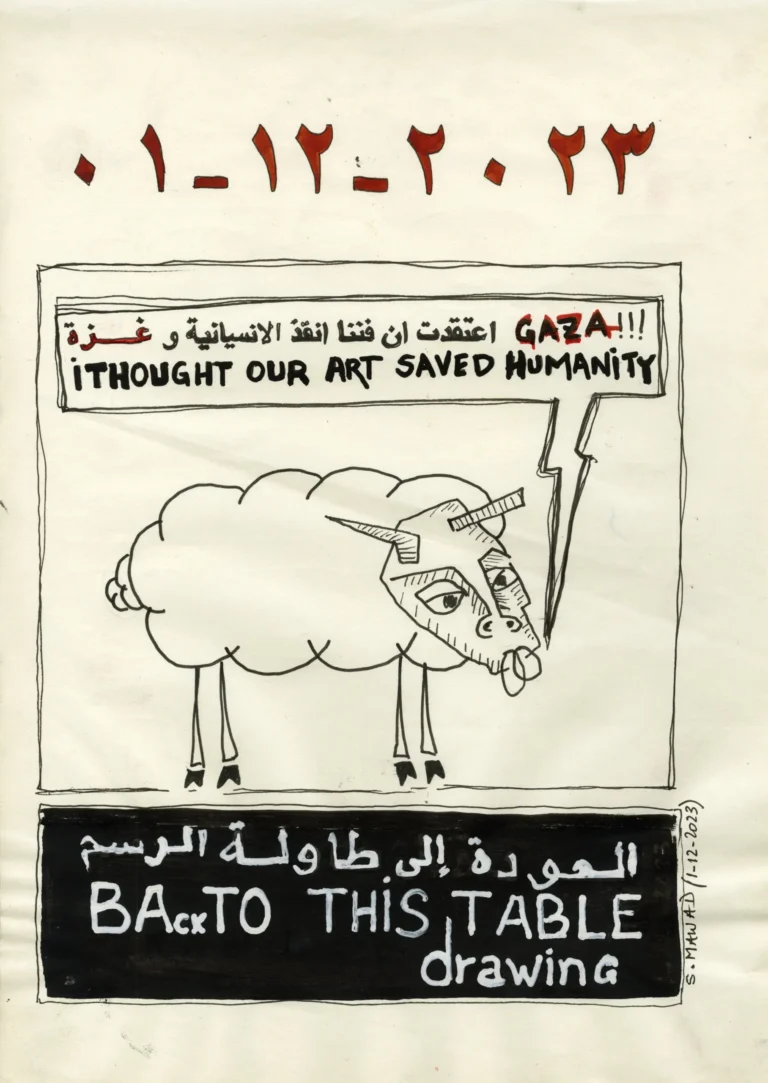 ٠١-١٢-٢٠٢٣
اعتقدت ان فننا انقذ الانسيانية و غـزة GAZA!!!
iTHOUGHT OUR ART SAVED HUMANITY
العودة إلى طاولة الرسم
BAcKTO THiS TABLE
drawinG
S. MAWAD/1-12-2023)